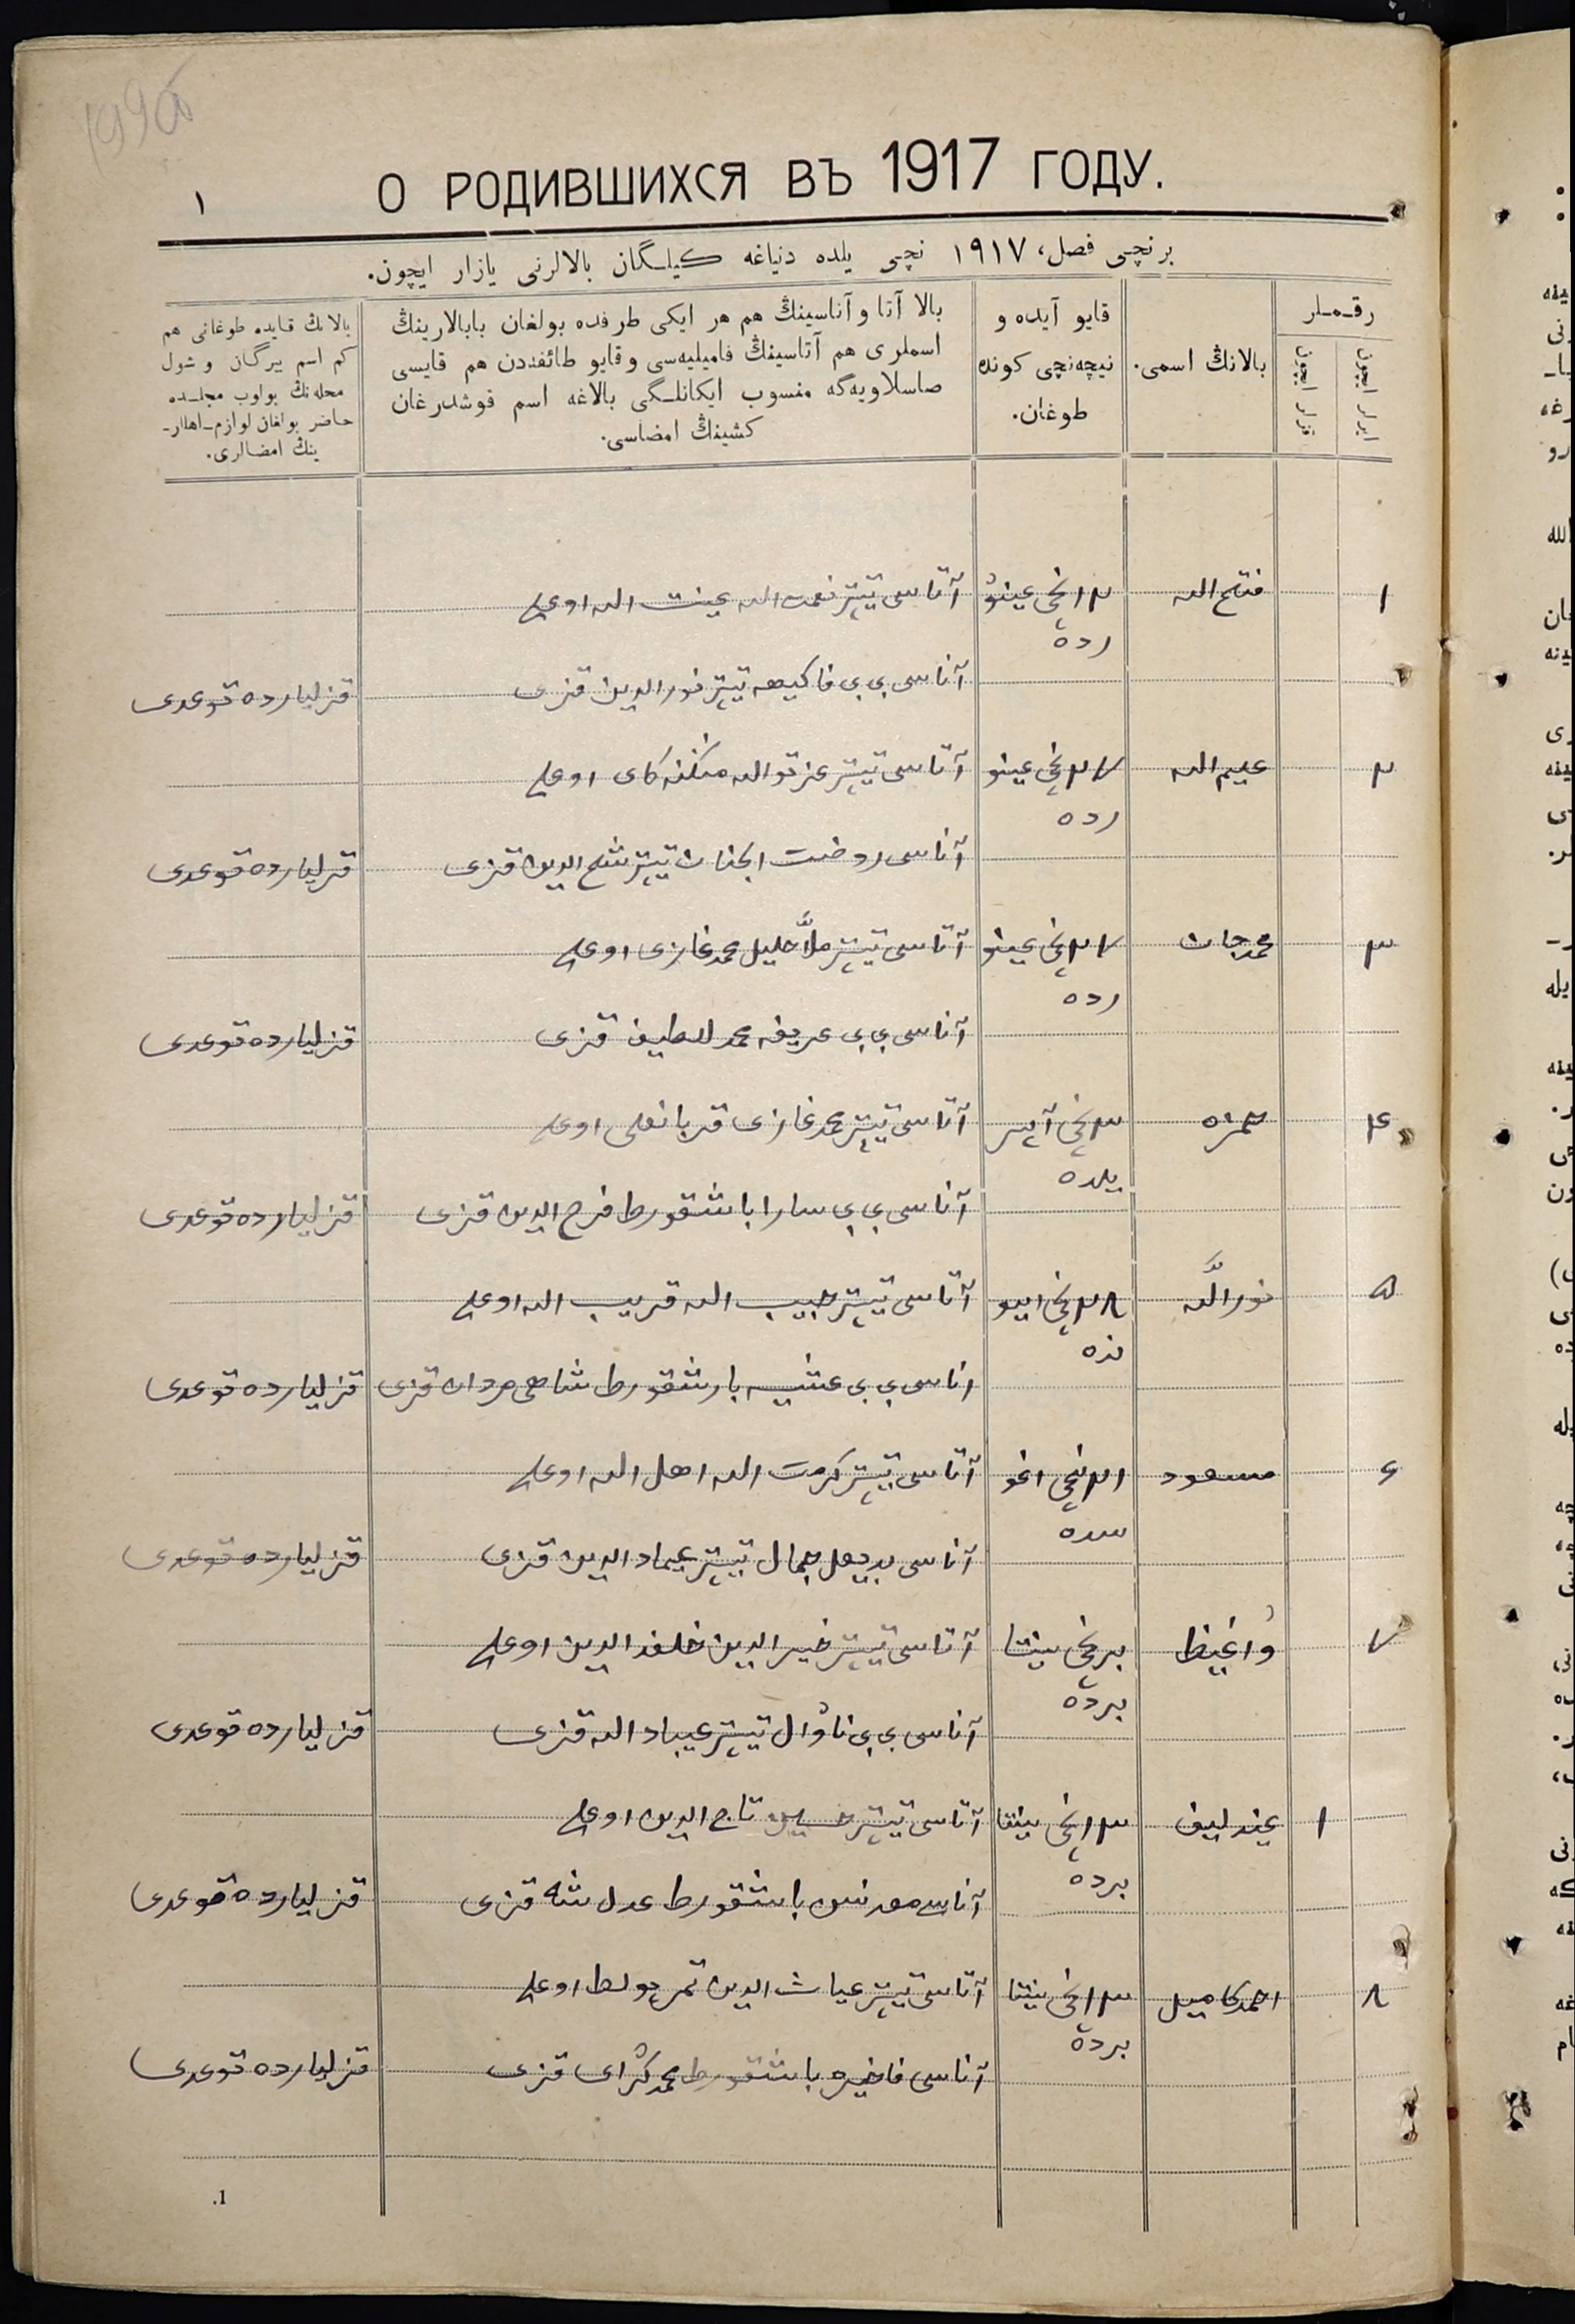 О РОДИВШИХСЯ ВЪ 1917 ГОДУ.
١
برنچی فصل، ١٩١٧ نچی يلده دنياغه كيلـگان بالالرنی يازار ايچون.
رقـمـلر
اير لر ايچون
قزلر ايچون
بالانڭ اسمی.
قايو آيده و
نيچه‌نچی كونده
طوغان.
بالا آتا و آناسينڭ هم هر ايكی طرفده بولغان بابالارينڭ
اسملری هم آتاسينڭ فاميليه‌سی و قايو طائفه‌دن هم قايسی
صاسلاويه‌گه منسوب ايكانلـگی بالاغه اسم قوشدرغان
كشينڭ امضاسی.
بالانڭ قايده طوغانی هم
كم اسم بيرگان و شول
محله‌نڭ بولوب مجلـسده
حاضر بولغان لوازم-اهللر-
ينڭ امضالری.
١ فتح الله ١٢نچی غينوُ آتاسی تيپتر نعمت الله عينت الله اوغلی
رده
آناسی بی بی فاكيهه تيپتر نورالدين قزی قزليارده توغدی
٢ عليم الله ٢٧نچی غينو آتاسی تيپتر عزتوالله اوغلی
رده
آناسی روضت الجنان تيپتر قزی قزليارده توغدی
٣ محمدجان ٢٧نچی غينو آتاسی تيپتر ملاَّ خليل محمدغازی اوغلی
رده
آناسی بی بی عريفه محمدلطيف قزی قزليارده توغدی
۴ حمزه ٣نچی آپر آتاسی تيپتر محمدغازی قربانعلی اوغلی
يلده
آناسی بی بی سارا باشقورط فرح الدين قزی قزليارده توغدی
۵ نوراللَّه ٢٨نچی ايو آتاسی تيپتر حبيب الله قريب الله اوغلی
نده
اناسی بی بی عشيه بارشقورط شاهی مردان قزی قزليارده توغدی
۶ مسعود ٢١نچی اغو آتاسی تيپتر كرمت الله اهل الله اوغلی
سده
آناسی بديعل جمال تيپتر عيماد الدين قزی قزليارده توغدی
٧ وُاغيظ برنچی سينتا آتاسی تيپتر خيرالدين خلف الدين اوغلی
برده
آناسی بی بی ناوُال تيپتر عيباد الله قزی قزليارده توغدی
١ عندليف ١٣نچی سينتا آتاسی تيپتر حسين تاج الدين اوغلی
برده
آناسی باشقورط عدل شه قزی قزليارده توغدی
٨ احمدكاميل ١٣نچی سينتا آتاسی تيپتر غياث الدين تمردولط اوغلی
برده
آناسی فاخيره باشقورط محمدكرای قزی قزليارده توغدی
1.